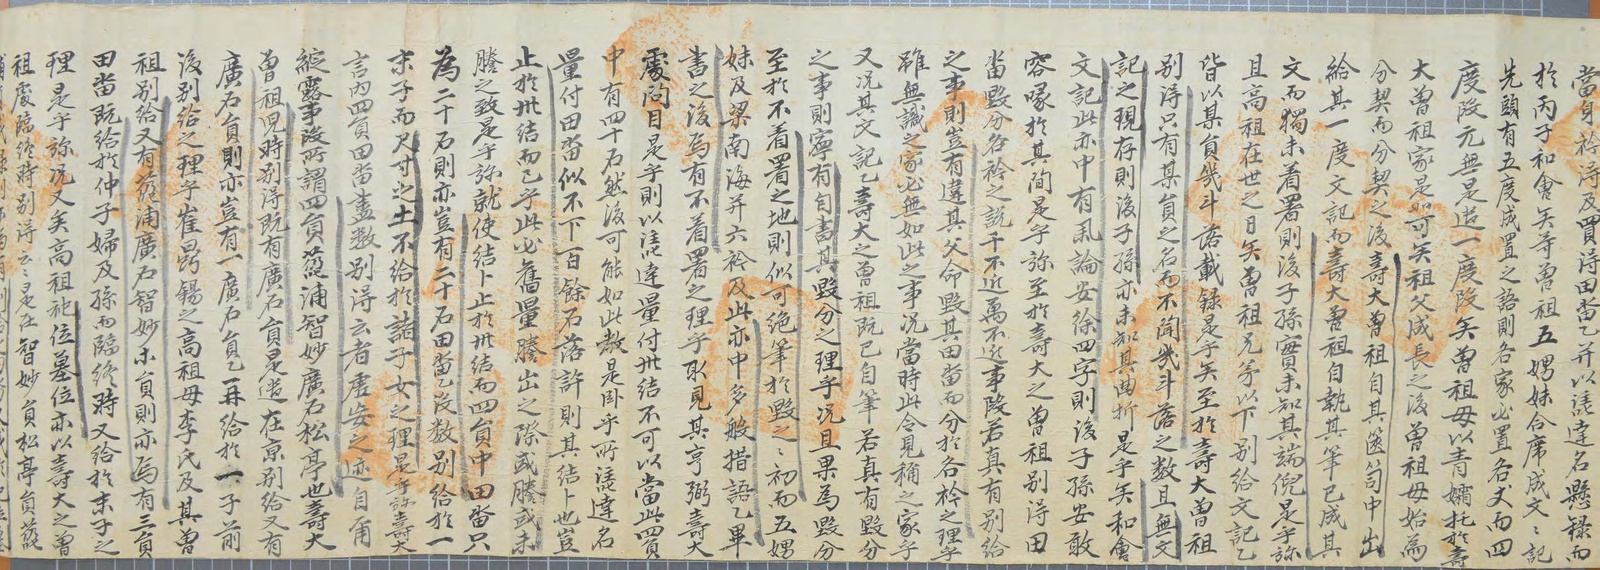 當身衿得及買得田畓乙并以憑達名懸錄而
於丙子和會矣等曾祖五娚妹合席成文文記
先頭有五度成置之語則各家必置各丈而四
度段元無是遣一度段矣曾祖母以青孀托於壽
大曾祖家是如可矣祖父成長之後曾祖母始爲
分契而分契之後壽大曾祖自其篋笥中出
給其一度文記而壽大曾祖自執其筆已成其
文而獨未着署則後子孫實未知其端倪是乎旀
且高祖在世之日矣曾祖兄弟以下別給文記乙
皆以某員幾斗落載錄是乎矣至於壽大曾祖
別得只有某員之名而不聞幾斗落之數且無文
記之現存則後子孫亦未知其曲折是乎矣和會
文記此亦中有亂論安徐四字則後子孫安敢
容喙於其間是乎旀至於壽大之曾祖別得田
畓毀分各衿之說千不近萬不近事段若真有別給
之事則豈有違其父命毀其田畓而分於各衿之理乎
雖無識之家必無如此之事況當時此令見稱之家乎
又況其文記乙壽大之曾祖旣已自筆若真有毀分
之事則寧有自書其毀分之理乎況且果爲毀分
至於不着署之地則似可絕筆於毀之之初而五娚
妹及梁南海并六衿及此亦中多般措語乙畢
書之後爲有不着署之理乎取見其亨弼壽大
處問目是乎則以憑達量付卅結不可以當此四員
中有四十石然後可能如此數是臥乎所憑達名
量付田畓似不下百餘石落許則其結卜也豈
止於卅結而已乎此必舊量謄出之際或謄或未
謄之致是乎旀就使結卜止於卅結而四員中田畓只
爲二十石則亦豈有二十石田畓乙沒數別給於一
末子而尺寸之土不給於諸子女之理是乎旀壽大
言內四員田畓盡數別得云者虛妄之迹自爾
綻露事段所謂四員菰浦智妙廣石松亭也壽大
曾祖兒時別得旣有廣石員是遣在京別給又有
廣石員則亦豈有一廣石員乙再給於一子前
後別給之理乎崔錫之高祖母李氏及其曾
祖別給又有菰浦廣石智妙等員則亦爲有三員
田畓旣給於仲子婦及孫而臨終時又給於末子之
理是乎旀況又矣高祖祀位墓位亦以壽大之曾
祖處臨終時別得云云是在智妙員松亭員菰